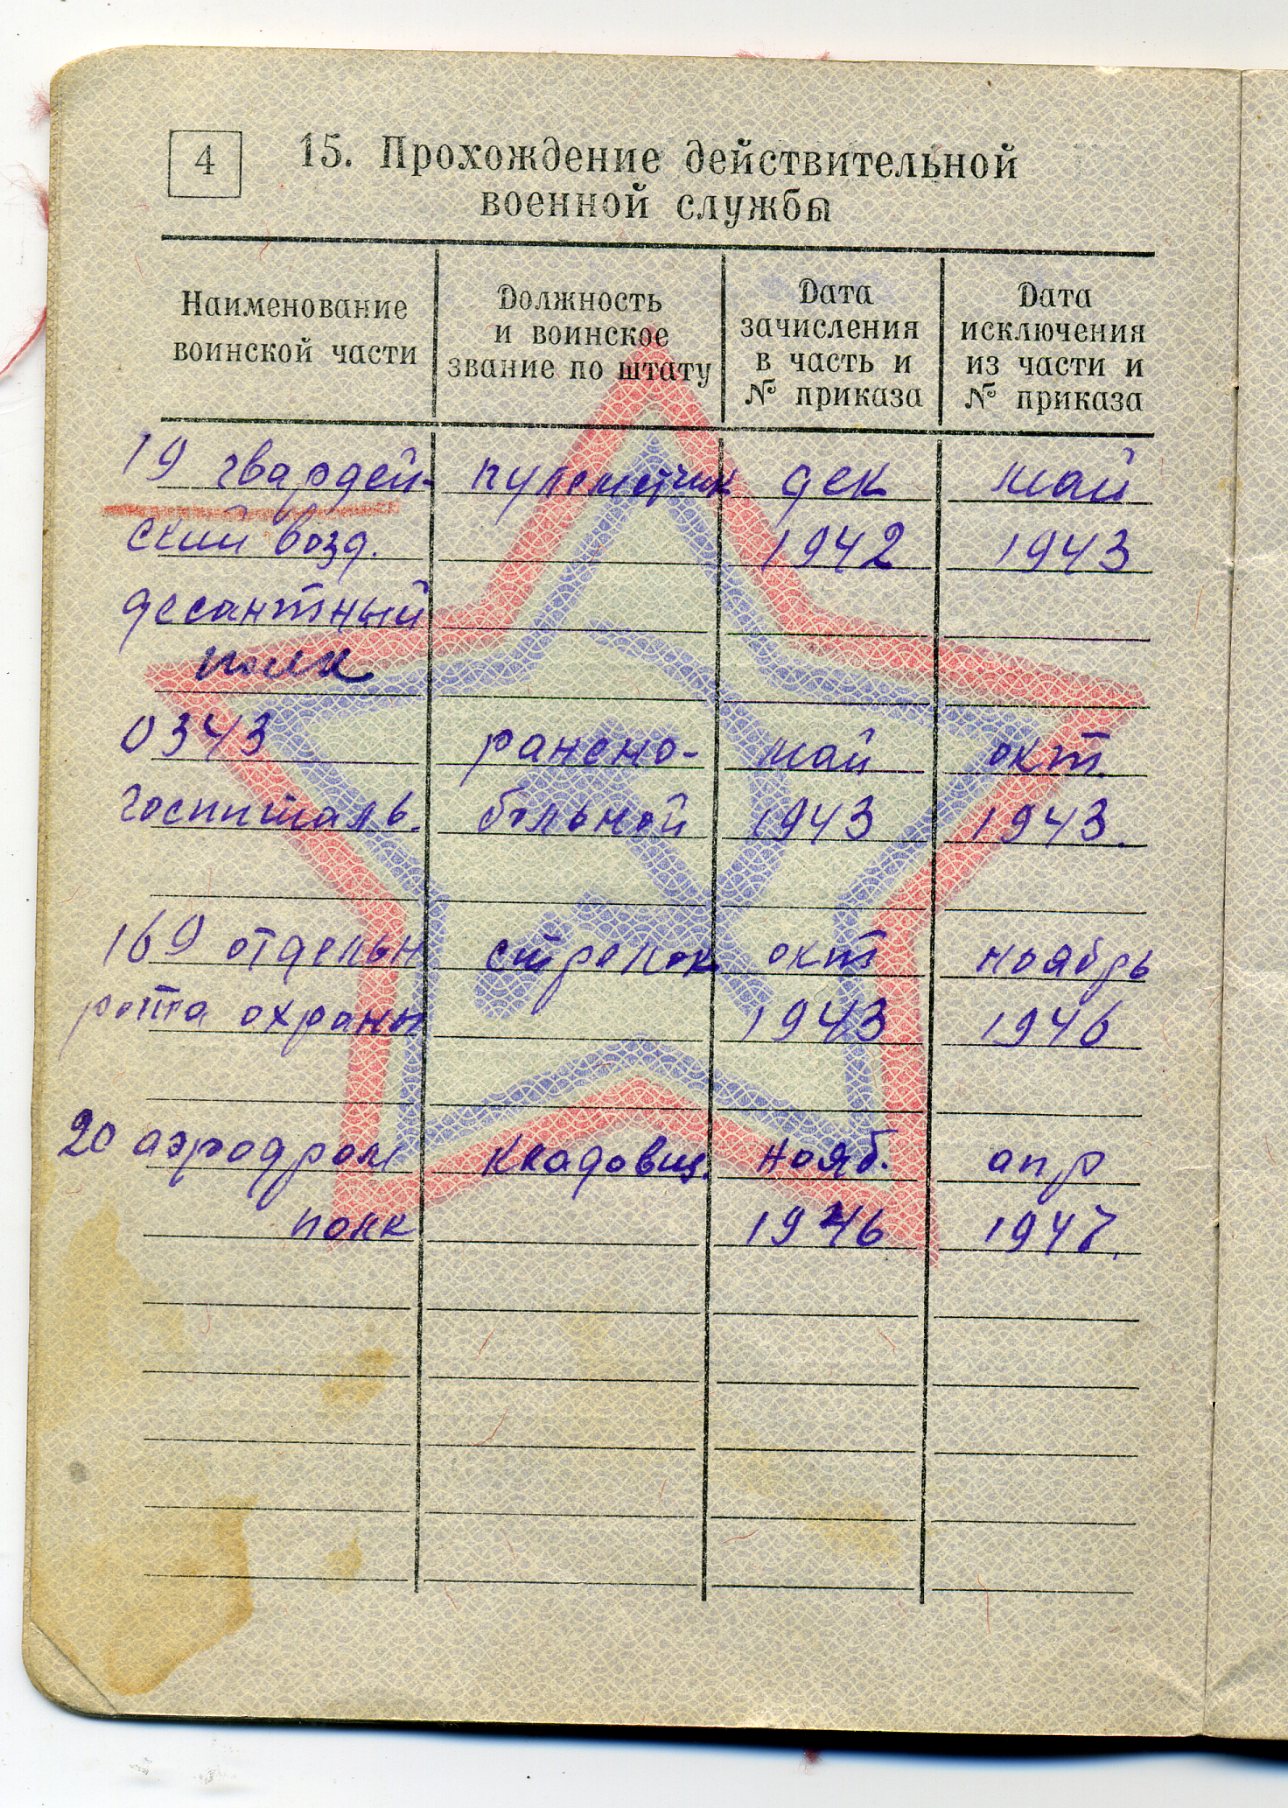 4
15. Прохождение действительной
военной службы
Наименование
воинской части
Должность
и воинское
звание по штату
Дата
зачисления
в часть и
№ приказа
Дата
исключения
из части и
№ приказа
19 гвардей- пулеметчик дек май
ский возд. 1942 1943
десантный
полк
0343 ранено- май окт.
госпиталь. больной 1943 1943.
169 отдельн стрелок окт ноябрь
рота охраны 1943 1946
20 аэродром кладовщ. нояб. апр
полк 1946 1947.